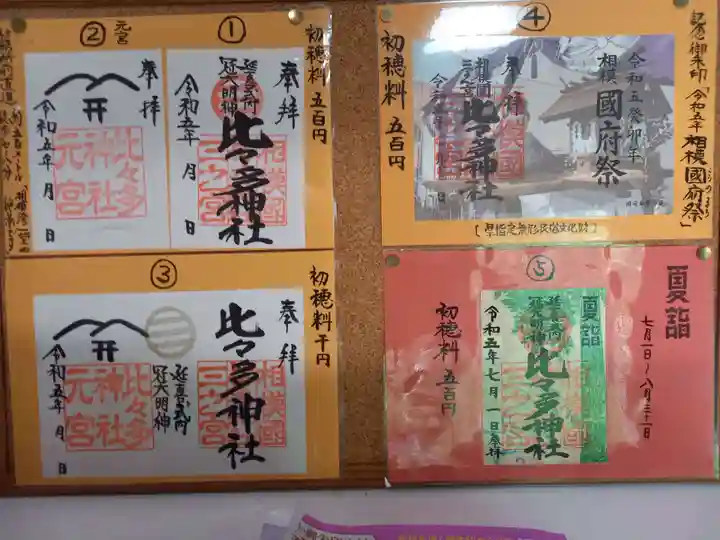 ①
初穂料 五百円
奉拝
延喜式内
冠大明神
比々多神社
相模國
三之宮
令和五年 月 日
②
元宮
奉拝
比々多
神社
元宮
令和五年 月 日
③
初穂料 千円
奉拝
比々多神社
相模國
三之宮
延喜式内
冠大明神
比々多
神社
元宮
令和五年 月 日
④
記念御朱印「令和五年 相模國府祭」
こうのまち
初穂料 五百円
令和五癸卯年
相模 國府祭
奉拝
相模國
三之宮
比々多神社
[県指定無形民俗文化財]
⑤
夏詣
七月一日~八月三十一日
初穂料 五百円
夏詣
延喜式内
冠大明神
比々多神社
令和五年七月一日参拝